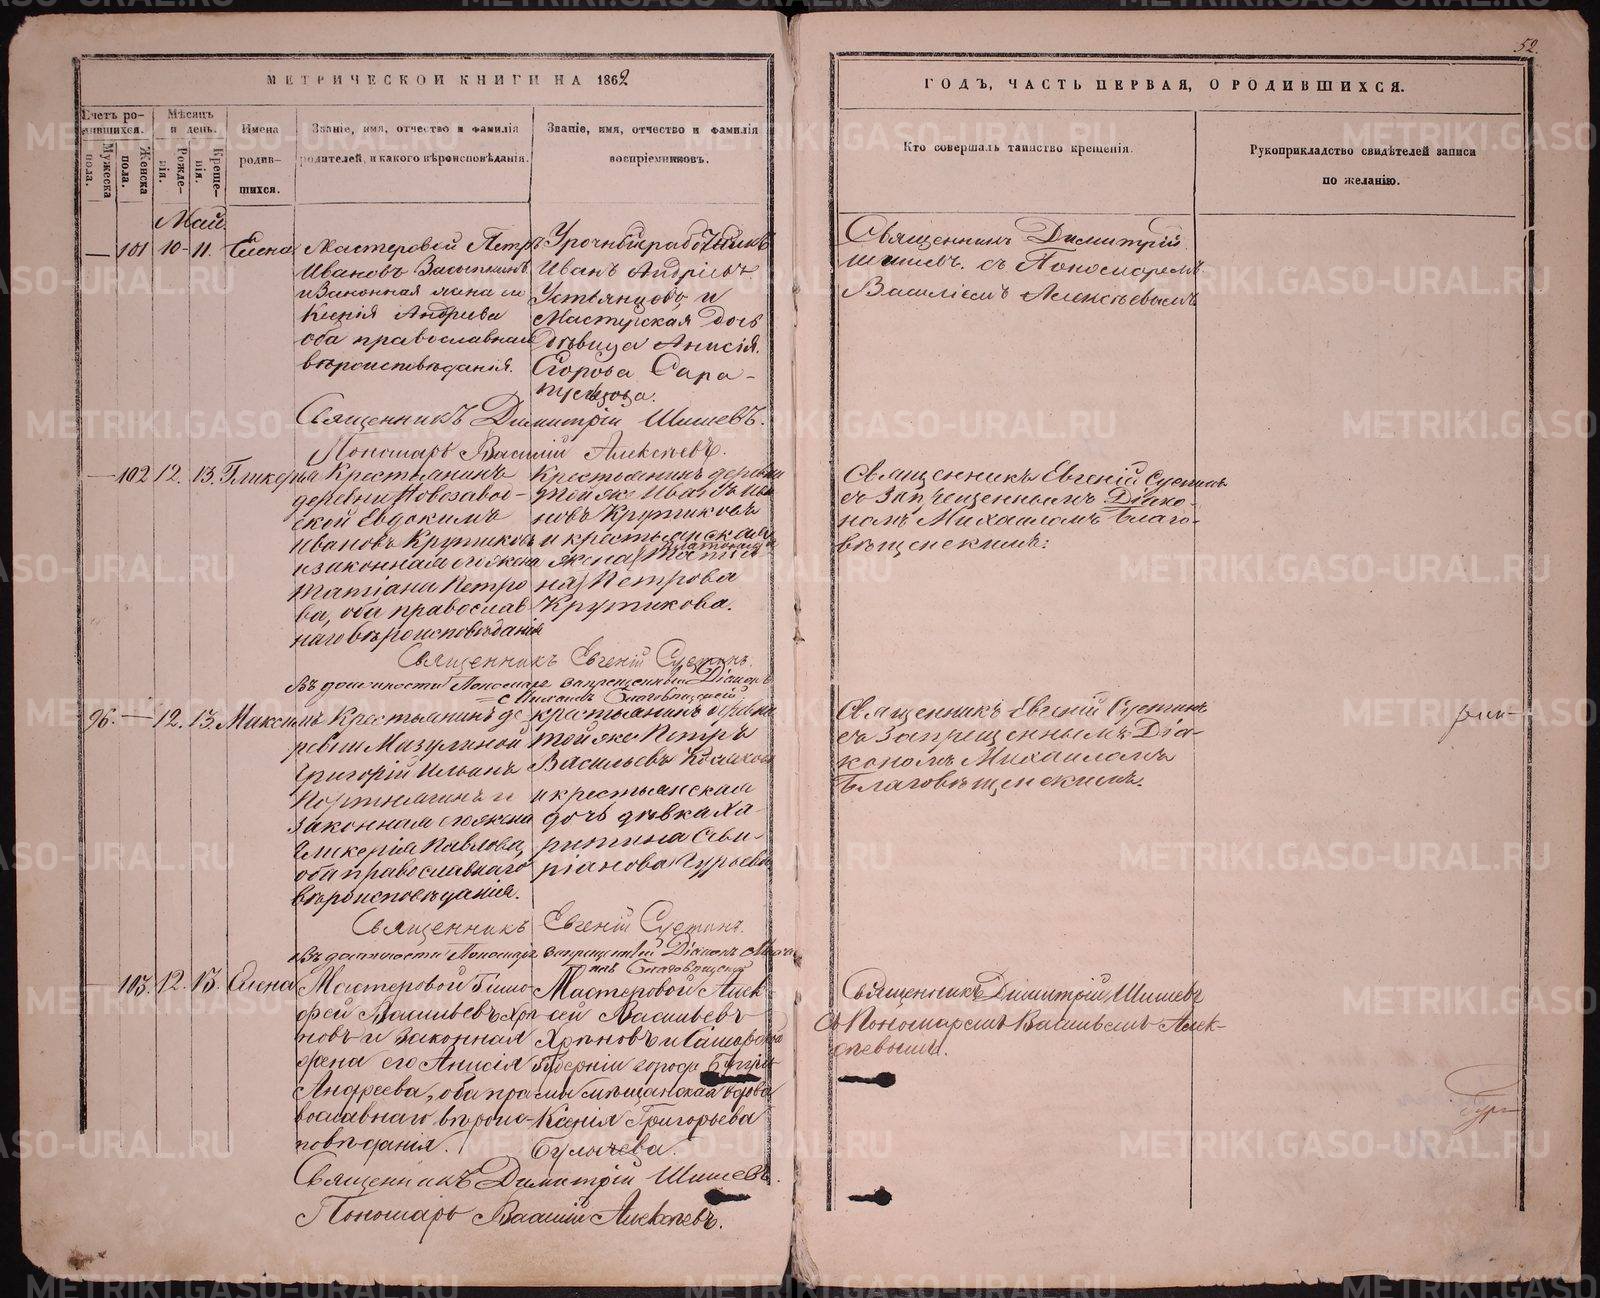 52.
МЕТРИЧЕСКОЙ КНИГИ НА 1862
ГОДЪ, ЧАСТЬ ПЕРВАЯ, О РОДИВШИХСЯ.
Счетъ ро-
дившихся.
Мужеска
пола.
Женска
пола.
Мѣсяцъ
и день.
Рожде-
нія.
Креще-
нія.
Имена
родив-
шихся.
Званіе, имя, отчество и фамилія
родителей, и какого вѣроисповѣданія.
Званіе, имя, отчество и фамилія
воспріемниковъ.
Кто совершалъ таинство крещенія.
Рукоприкладство свидѣтелей записи
по желанію.
Май
— 101 10- 11. Елена
Мастеровой Петръ
Ивановъ
и законная жена его
Ксенія Андреева
оба православнаго
вѣроисповѣданія.
Урочный работникъ
Иванъ Андріевъ
Устьянцовъ и
Мастерская дочь
дѣвица Анисія
Егорова Сара-
пульцова.
Священникъ Димитрій
Шишевъ. съ Пономаремъ
Василіемъ Алексѣевымъ
Священникъ Димитрій Шишевъ.
Пономарь Василій Алексѣевъ.
— 102 12. 13. Гликерія
Крестьянинъ
деревни Новозавод-
ской Евдокимъ
Ивановъ Крутиковъ
и законная его жена
Татіана Петро
ва, оба православ
наго вѣроисповѣданія
Крестьянинъ деревни
той же Иванъ Ива
новъ Крутиковъ
и крестьянская
жена
Петрова
Крутикова.
Священникъ Евгеній Сустинъ
съ Запрещеннымъ Діако-
номъ Михаиломъ Благо-
вѣщенскимъ:
Священникъ Евгеній Сустинъ.
Въ должности Пономаря запрещенный Діаконъ
Михаилъ Благовѣщенскій
96. — 12. 13. Максимъ
Крестьянинъ де
ревни Мазулиной
Григорій Ильинъ
Портнягинъ и
законная его жена
Гликерія Павлова,
оба православнаго
вѣроисповѣданія.
крестьянинъ деревни
той же Петръ
Васильевъ
и крестьянская
дочь дѣвка Ха-
ритина Сави-
ріанова Гурьева
Священникъ Евгеній Сустинъ
съ Запрещеннымъ Діа-
кономъ Михаиломъ
Благовѣщенскимъ.
Священникъ Евгеній Сустинъ.
Въ должности Пономаря запрещенный Діаконъ Миха
илъ Благовѣщенскій
— 103. 12. 13. Елена
Мастеровой Тимо-
фей Васильевъ Хрѣ-
новъ и законная
жена его Анисія
Андреева, оба пра
вославнаго вѣроис-
повѣданія.
Мастеровой Алек
сѣй Васильевъ
Хрѣновъ и Самарской
губерніи города Бугуль
мы мѣщанская вдова
Ксенія Григорьева
Булычева.
Священникъ Димитрій Шишевъ
съ Пономаремъ Василіемъ Алек-
сѣевымъ.
Священникъ Димитрій Шишевъ.
Пономарь Василій Алексѣевъ.
METRIKI.GASO-URAL.RU